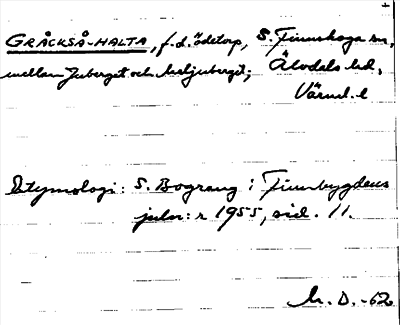 GRÅCKSÅ-HALTA, f.d. ödetorp, S. Finnskoga sn,
mellan Juberget och Aspjuberget; Älvdals hd,
Värml. l
Etymologi: S. Bograng i Finnbygdens
julnr 1955, sid. 11.
M. D. -62